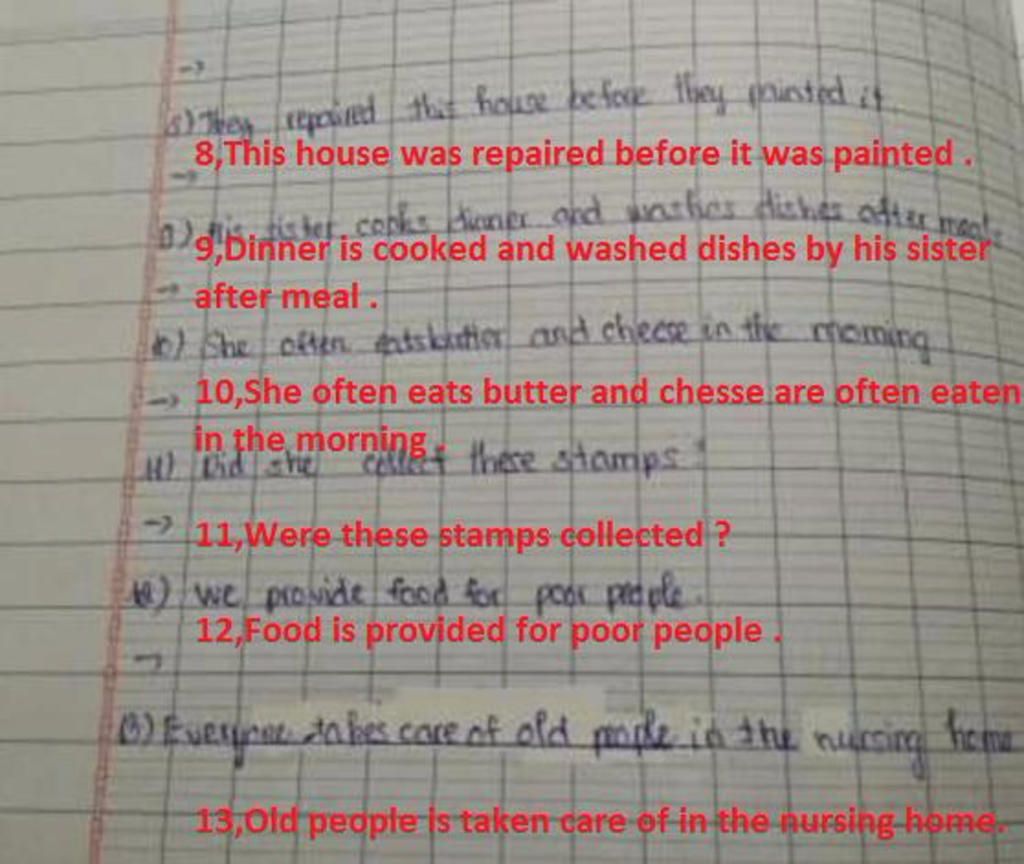 →
8) They repaired this house before they painted it
8,This house was repaired before it was painted .
→
9) His sister cooks dinner and washes dishes after meal.
9,Dinner is cooked and washed dishes by his sister
after meal .
→
10) She often eats butter and cheese in the morning
→ 10,She often eats butter and chesse are often eaten
in the morning .
11) Did she collect these stamps ?
→ 11,Were these stamps collected ?
12) we provide food for poor people.
12,Food is provided for poor people .
→
13) Everyone takes care of old people in the nursing home
13,Old people is taken care of in the nursing home.